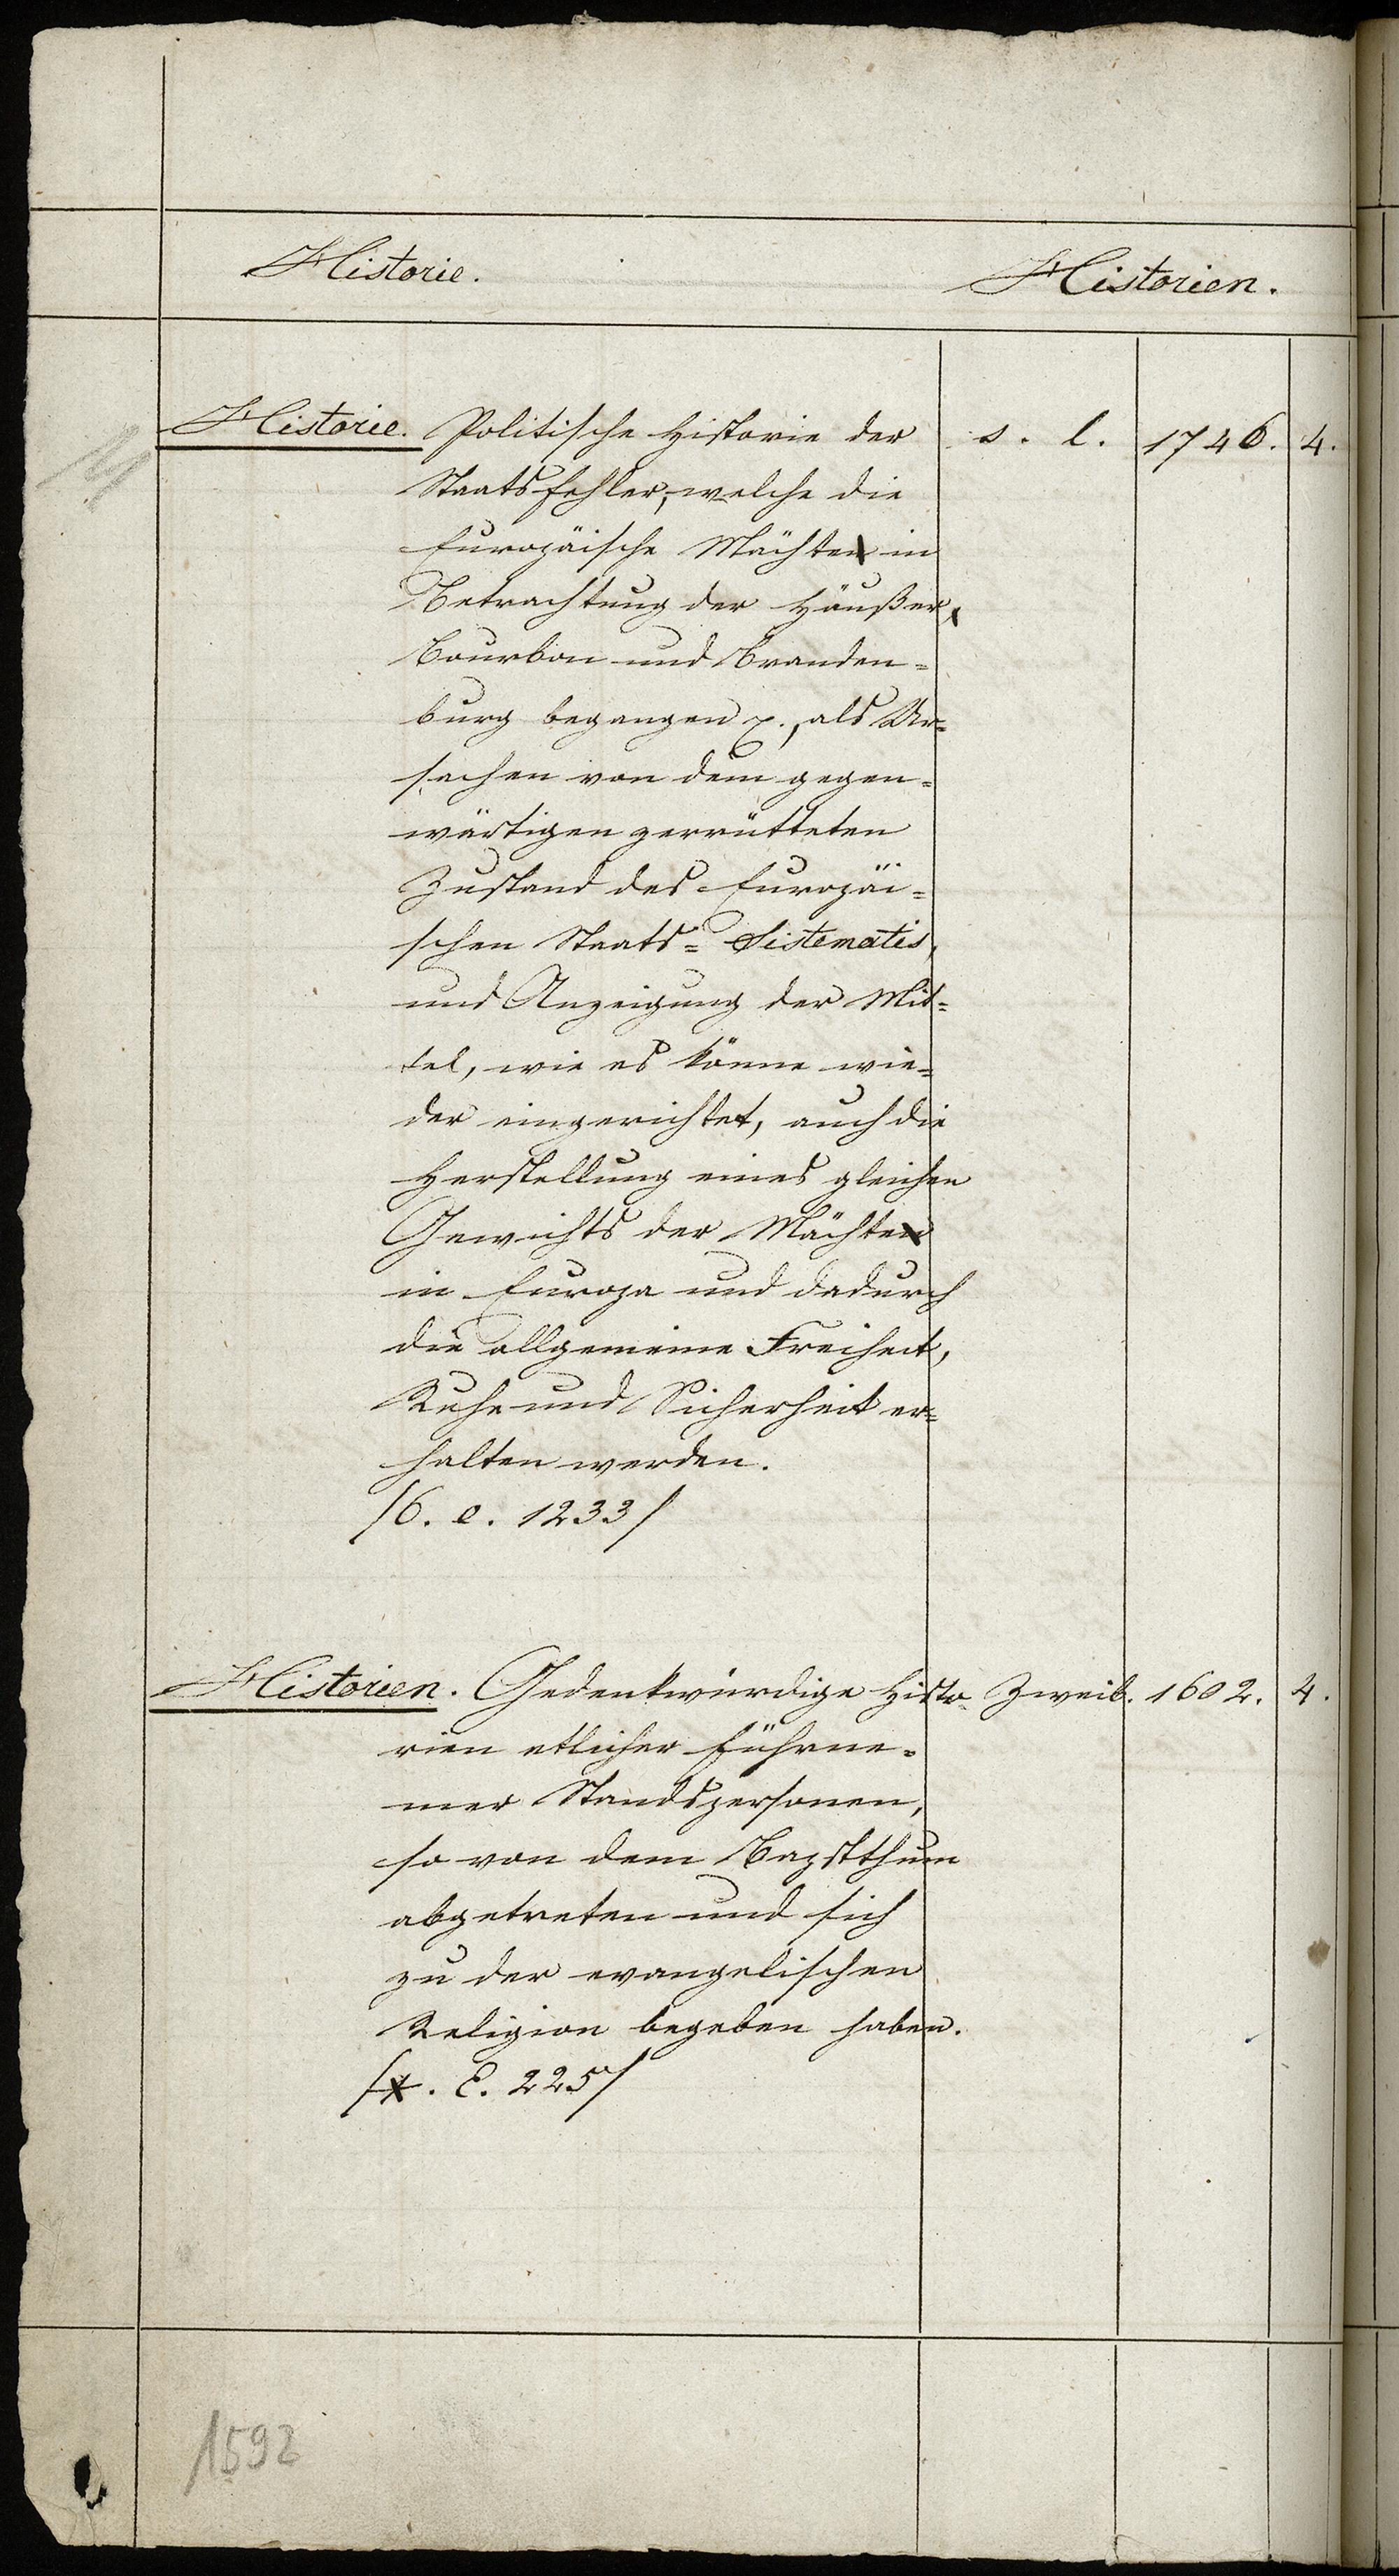 Historie. Historien.
Historie. Politische Historie der s. l. 1746. 4.
Staatsfehler, welche die
Europäische Mächte in
Betrachtung der Häußer
Bourbon und Branden-
burg begangen ⁊c., als Ur-
sachen von dem gegen-
wärtigen zerrütteten
Zustand des Europäi-
schen Staats- Sistematis,
und Anzeigung der Mit-
tel, wie es könne wie-
der eingerichtet, auch die
Herstellung eines gleichen
Gewichts der Mächte
in Europa und dadurch
die allgemeine Freiheit,
Ruhe und Sicherheit er-
halten werden.
/6. e. 1233/
Historien. Gedenkwürdige Histo- Zweib. 1602. 4.
rien etlicher führne-
mer Standspersonen,
so von dem Bapstthum
abgetreten und sich
zu der evangelischen
Religion begeben haben.
/*. E. 225/
1592